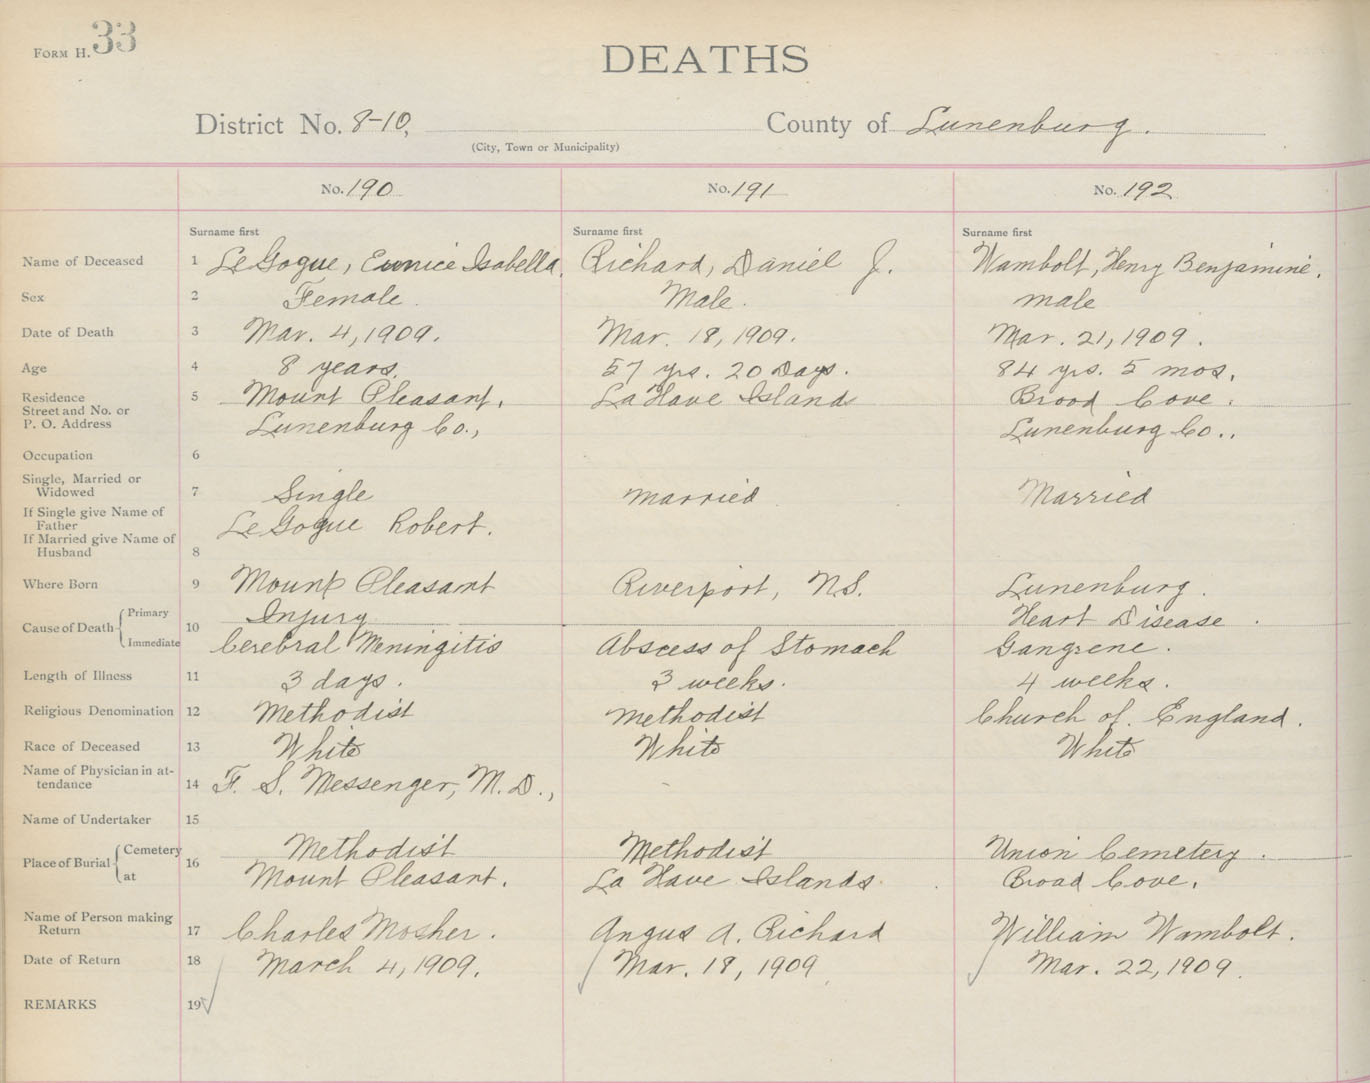 FORM H. 33
DEATHS
District No. 8-10, County of Lunenburg.
(City, Town or Municipality)
No. 190 No. 191 No. 192
Surname first Surname first Surname first
Name of Deceased 1 LeGogue, Eunice Isabella. Richard, Daniel J. Wambolt, Henry Benjamine.
Sex 2 Female. Male. male
Date of Death 3 Mar. 4, 1909. Mar. 18, 1909. Mar. 21, 1909.
Age 4 8 years. 57 yrs. 20 Days. 84 yrs. 5 mos.
Residence 5 Mount Pleasant, La Have Island Broad Cove.
Street and No. or
P. O. Address Lunenburg Co., Lunenburg Co..
Occupation 6
Single, Married or
Widowed 7 Single married Married
If Single give Name of
Father LeGogue Robert.
If Married give Name of
Husband 8
Where Born 9 Mount Pleasant Riverport, N.S. Lunenburg.
Cause of Death Primary 10 Injury Heart Disease.
Immediate Cerebral Meningitis Abscess of Stomach Gangrene.
Length of Illness 11 3 days. 3 weeks. 4 weeks.
Religious Denomination 12 Methodist Methodist Church of England.
Race of Deceased 13 White White White
Name of Physician in at-
tendance 14 F. S. Messenger, M. D.,
Name of Undertaker 15
Place of Burial Cemetery 16 Methodist Methodist Union Cemetery.
at Mount Pleasant. La Have Islands. Broad Cove.
Name of Person making
Return 17 Charles Mosher. Angus A. Richard William Wambolt.
Date of Return 18 March 4, 1909. Mar. 18, 1909 Mar. 22, 1909.
REMARKS 19